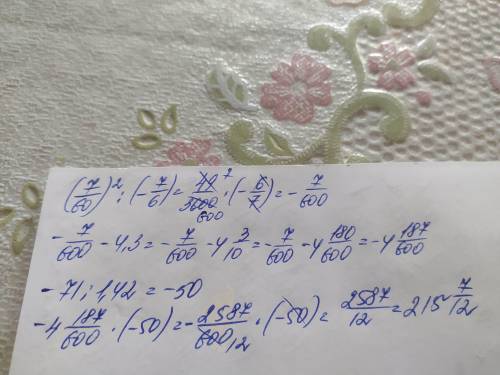 (7/60)² : (-7/6) = 49/3600 · (-6/7) = -7/600
-7/600 - 4,3 = -7/600 - 4 3/10 = -7/600 - 4 180/600 = -4 187/600
-71 : 1,42 = -50
-4 187/600 · (-50) = -2587/600 · (-50) = 2587/12 = 215 7/12